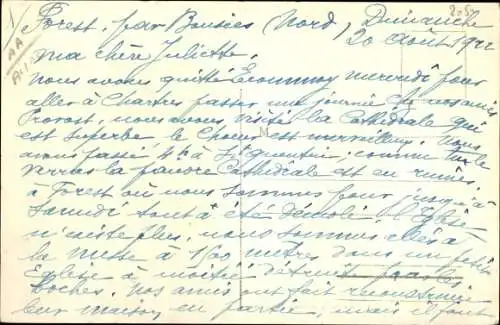 Forest, par Bousies (Nord), Dimanche
20 août 1922
Ma chère Juliette.
Nous avons quitté Ecommoy mercredi pour
aller à Chartres passer une journée chez nos amis
Provost, nous avons visité la Cathédrale qui
est superbe, le Choeur est merveilleux. Nous
avons passé 4h à St Quentin, comme tu le
verras la pauvre Cathédrale est en ruines.
à Forest où nous sommes pour jusqu'à
samedi tout a été démoli. L'Eglise
n'existe plus, nous sommes allés à
la messe à 1500 mètres dans un petit
Eglise à moitié détruite par les
boches. Nos amis ont fait reconstruire
leur maison en partie, mais il faut